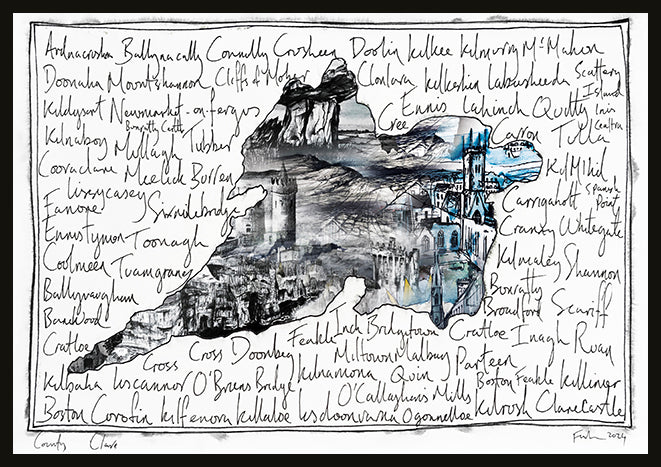 Ardnacrusha Ballynacally Connolly Crosheen Doolin Kilkee Kilmurry McMahon
Doonaha Mountshannon Cliffs of Moher Clonlara Kilkishin Labasheeda Scattery Island
Kildysart Newmarket-on-fergus Cree Ennis Lahinch Quilty Inis Cealtra
Kilnaboy Mullagh Bunratty Castle Tubber Carron Tulla
Cooraclare Meelick Burren Kilmihil
Lissycasey Carrigaholt Spanish Point
Fanore Sixmilebridge Cranny Whitegate
Ennistymon Toonagh Kilmaley Shannon
Coolmeen Tuamgraney Boxratty
Ballyvaughan Broadford Scariff
Barefield Feakle Inch Bridgetown Cratloe Inagh Ruan
Cratloe Cross Cross Doonbeg Miltown Malbay Parteen
Kilbaha Liscannor O'Briens Bridge Kilnamona Quin Boston Feakle Killimer
Boston Corofin Kilfenora Killaloe Lisdoonvarna O'Callaghans Mills Ogonnelloe Kilrush Clarecastle
County Clare 2024